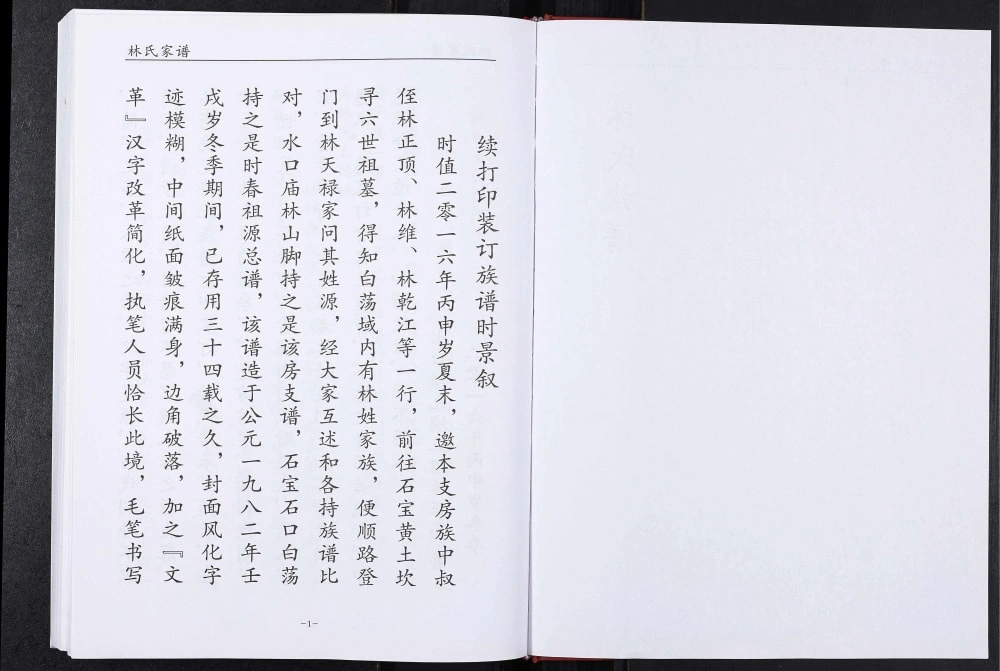 林氏家谱
续打印装订族谱时景叙
时值二零一六年丙申岁夏末，邀本支房族中叔
侄林正顶、林维、林乾江等一行，前往石宝黄土坎
寻六世祖墓，得知白荡域内有林姓家族，便顺路登
门到林天禄家问其姓源，经大家互述和各持族谱比
对，水口庙林山脚持之是该房支谱，石宝石口白荡
持之是时春祖源总谱，该谱造于公元一九八二年壬
戌岁冬季期间，已存用三十四载之久，封面风化字
迹模糊，中间纸面皱痕满身，边角破落，加之『文
革』汉字改革简化，执笔人员恰长此境，毛笔书写
-1-